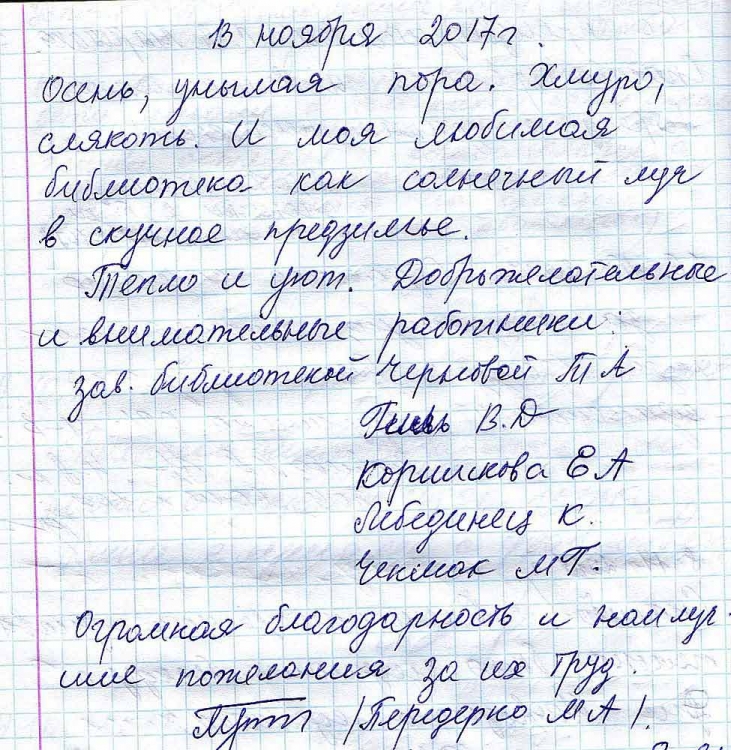 13 ноября 2017г.
Осень, унылая пора. Хмуро,
слякоть. И моя любимая
библиотека как солнечный луч
в скучное предзимье.
Тепло и уют. Доброжелательные
и внимательные работники:
зав. библиотекой Черновой Т А
В.Д
Коршикова Е А
Лебединец К.
Чекмак М Г.
Огромная благодарность и наилуч-
шие пожелания за их труд.
/Передерко М А/.